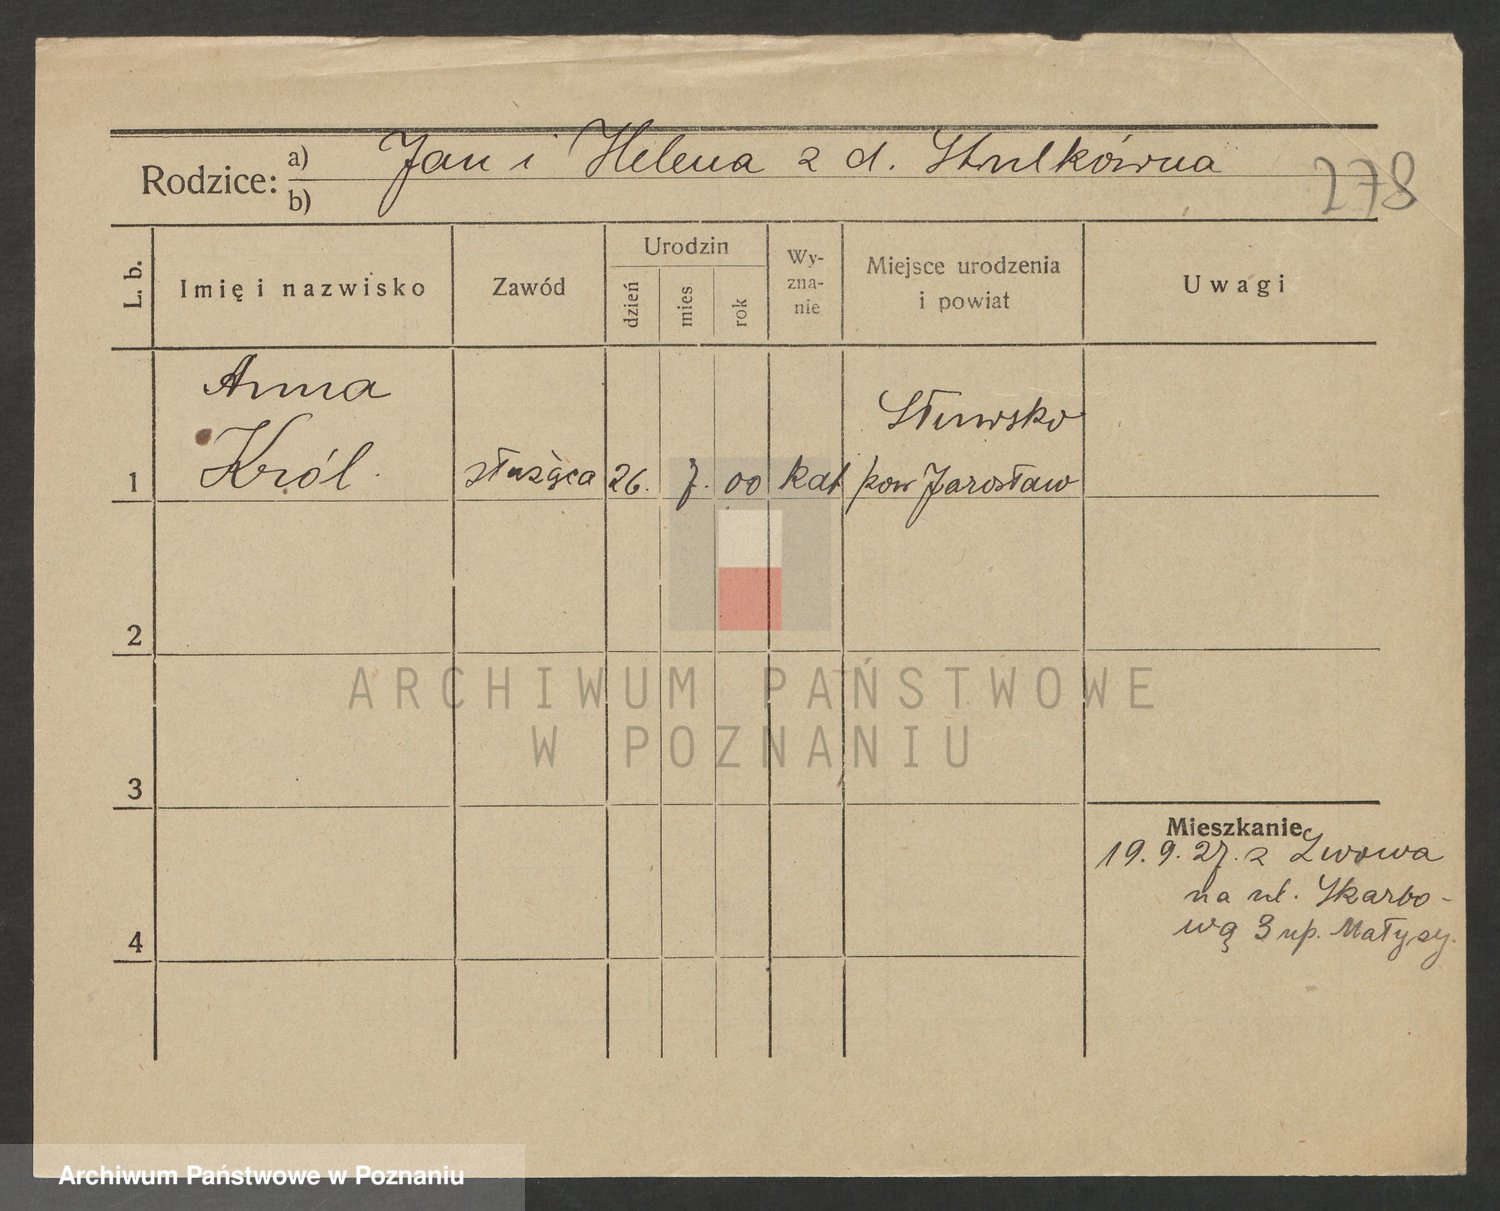 Rodzice: a) Jan i Helena z d.
b)
278
L. b.
Imię i nazwisko
Zawód
Urodzin
dzień
mies
rok
Wy-
zna-
nie
Miejsce urodzenia
i powiat
Uwagi
Anna
Król
1
służąca
26.
7.
00
kat
pow Jarosław
2
3
4
Mieszkanie
19.9.27. z Lwowa
na ul. Skarbo-
wą 3 up.
ARCHIWUM PAŃSTWOWE
W POZNANIU
Archiwum Państwowe w Poznaniu